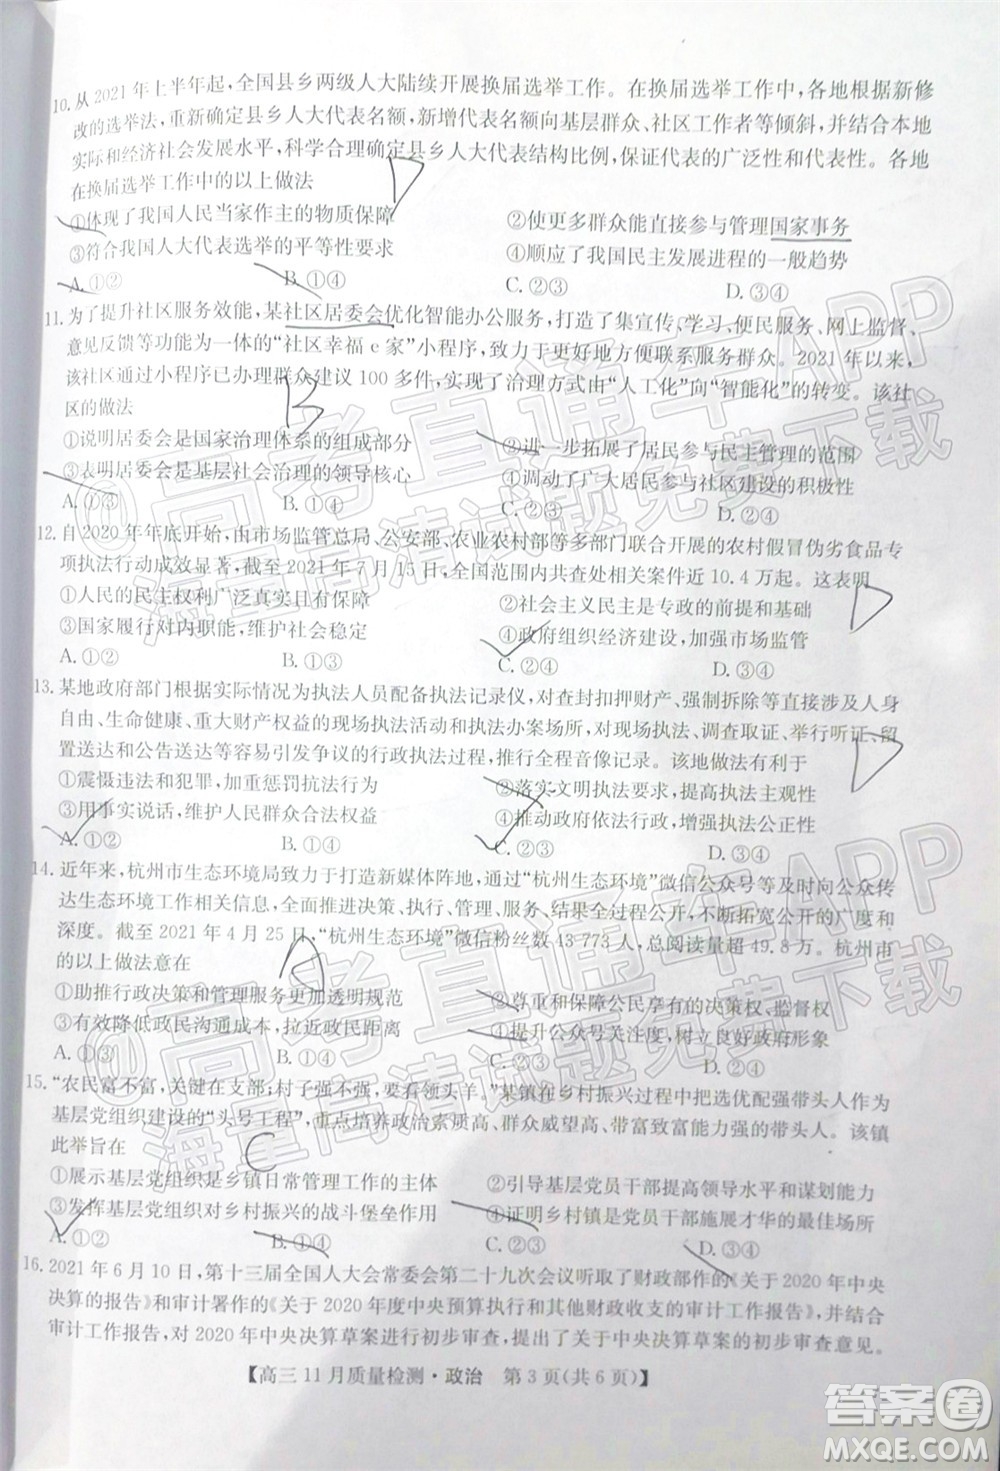 10. 从2021年上半年起，全国县乡两级人大陆续开展换届选举工作。在换届选举工作中，各地根据新修
改的选举法，重新确定县乡人大代表名额，新增代表名额向基层群众、社区工作者等倾斜，并结合本地
实际和经济社会发展水平，科学合理确定县乡人大代表结构比例，保证代表的广泛性和代表性。各地
在换届选举工作中的以上做法
D
①体现了我国人民当家作主的物质保障 ②使更多群众能直接参与管理国家事务
③符合我国人大代表选举的平等性要求 ④顺应了我国民主发展进程的一般趋势
A.①② B.①④ C.②③ D.③④
11. 为了提升社区服务效能，某社区居委会优化智能办公服务，打造了集宣传、学习、便民服务、网上监督、
意见反馈等功能为一体的“社区幸福e家”小程序，致力于更多更好地方便联系服务群众。2021年以来，
该社区通过小程序已办理群众建议100多件，实现了治理方式由“人工化”向“智能化”的转变。该社
区的做法
B
①说明居委会是国家治理体系的组成部分 ②进一步拓展了居民参与管理的范围
③表明居委会是基层社会治理的领导核心 ④调动了广大居民参与社区建设的积极性
A.①③ B.①④ C.②③ D.②④
12. 自2020年年底开始，由市场监管总局、公安部、农业农村部等多部门联合开展的农村假冒伪劣食品专
项执法行动成效显著，截至2021年7月15日，全国范围内共查处相关案件近10.4万起。这表明
D
①人民的民主权利广泛真实且有保障 ②社会主义民主是专政的前提和基础
③国家履行对内职能，维护社会稳定 ④政府组织经济建设，加强市场监管
A.①② B.①③ C.②④ D.③④
13. 某地政府部门根据实际情况为执法人员配备执法记录仪，对查封扣押财产、强制拆除等直接涉及人身
自由、生命健康、重大财产权益的现场执法活动和执法办案场所，对现场执法、调查取证、举行听证、留
置送达和公告送达等容易引发争议的行政执法过程，推行全程音像记录。该地做法有利于
D
①震慑违法和犯罪，加重惩罚抗法行为 ②落实文明执法要求，提高执法主观性
③用事实说话，维护人民群众合法权益 ④推动政府依法行政，增强执法公正性
A.①② B.①④ C.②③ D.③④
14. 近年来，杭州市生态环境局致力于打造新媒体阵地，通过“杭州生态环境”微信公众号等及时向公众传
达生态环境工作内容，全面推进决策、执行、管理、服务、结果全过程公开，不断拓宽公开的广度和
深度。截至2021年4月25日，“杭州生态环境”微信粉丝数43 773人，总阅读量超49.8万。杭州市
的以上做法意在
A
①助推行政决策和管理服务更加透明规范 ②尊重和保障公民享有的决策权、监督权
③有效降低政民沟通成本，拉近政民距离 ④提升公众号关注度，树立良好政府形象
A.①③ B.①④ C.②③ D.②④
15. “农民富不富，关键在支部；村子强不强，要看领头羊。”某镇在乡村振兴实践中把选优配强带头人作为
基层党组织建设的“头号工程”，重点培养政治素质高、群众威望高、带富致富能力强的带头人。该镇
此举旨在
C
①展示基层党组织是乡镇日常管理工作的主体 ②引导基层党员干部提高领导水平和谋划能力
③发挥基层党组织对乡村振兴的战斗堡垒作用 ④证明乡村镇是党员干部施展才华的最佳场所
A.①② B.①④ C.②③ D.③④
16. 2021年6月10日，第十三届全国人大会常委会第二十九次会议听取了财政部作的《关于2020年中央
决算的报告》和审计署作的《关于2020年度中央预算执行和其他财政收支的审计工作报告》，并结合
审计工作报告，对2020年中央决算草案进行初步审查，提出了关于中央决算草案的初步审查意见。
【高三11月质量检测·政治 第3页(共6页)】
@高考直通车APP
海量高清试题免费下载
@高考直通车APP
海量高清试题免费下载
答案圈
MXQE.COM